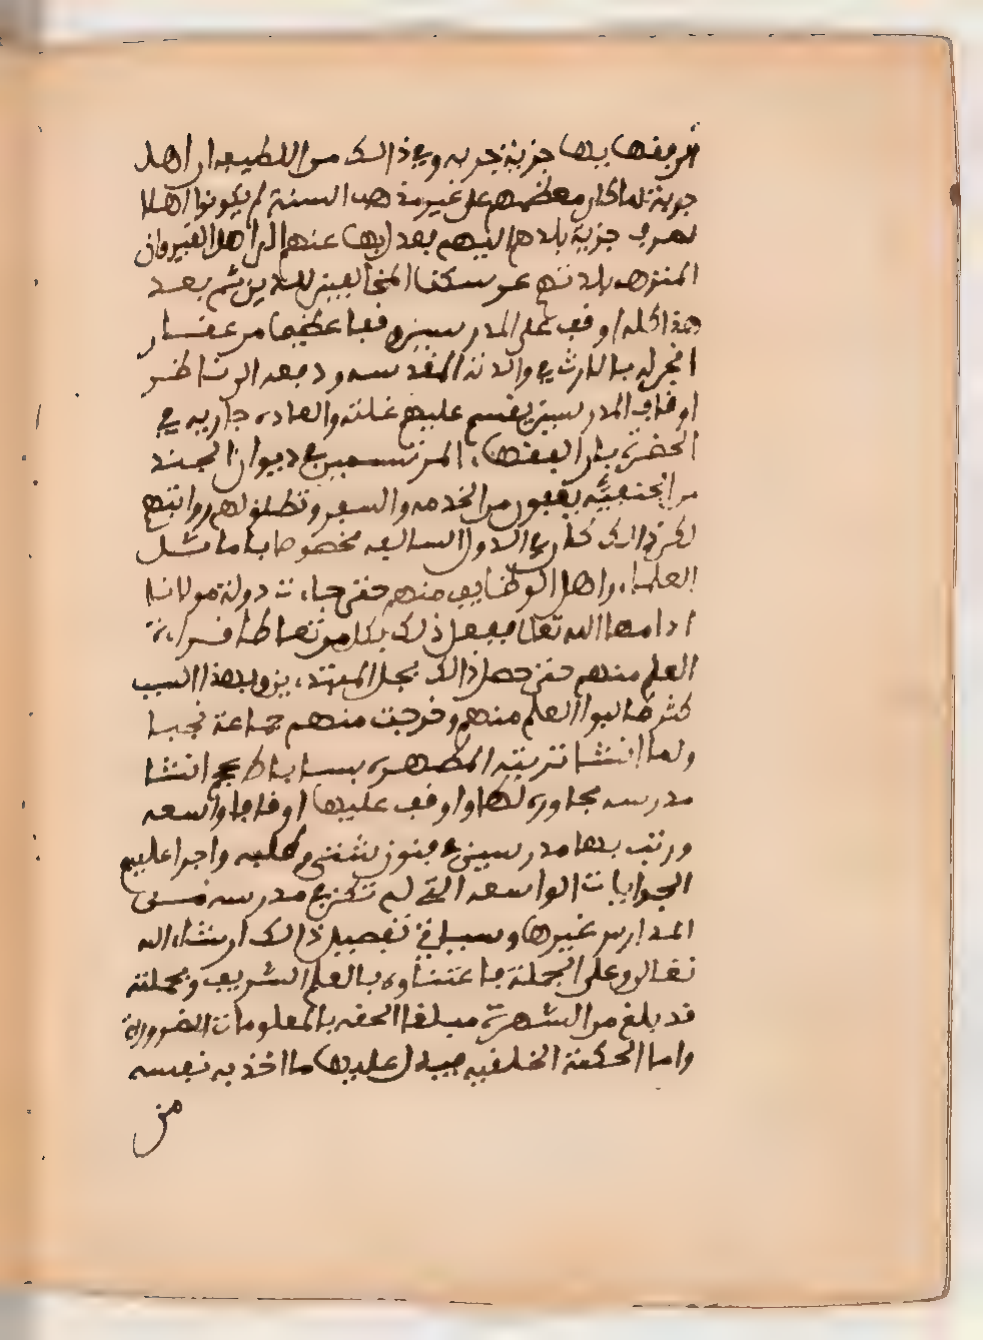 تعريفها بها جزية جربه وفي ذالك من اللطيفه ان اهل
جربة لما كان معظمهم على غير مذهب السنة لم يكونوا اهلا
لصرف جزية بلدهم اليهم بعد رفعها عنهم الى اهل القيروان
المنزهه بلدتهم عن سكنا المخالفين للدين ثم بعد
هذا كله اوقف على المدرسين وقفا عظيما من عقار
انجر له بالارث في والدته المقدسه ودفعه الى ناظر
اوقاف المدرسين يقسم عليهم غلته والعاده جاريه في
الحضرة بان الفقهاء المرتسمين في ديوان الجند
من الحنفيه يعفون من الخدمه والسفر وتطلق لهم رواتبهم
لكن ذالك كان في الدول السالفه مخصوصا باماثل
العلماء واهل الوظايف منهم حتى جاءت دولة مولانا
ادامها الله تعالى ففعل ذلك بكل من تعاطا قراءة
العلم منهم حتى حصل ذالك لجل المبتدءين وبهذا السبب
كثر طالبوا العلم منهم وخرجت منهم جماعة نجبا
ولما انتشا تربته المطهره بساباط عجم انتشا
مدرسه مجاوره لها واوقف عليها اوقافا واسعه
ورتب بها مدرسين في فنون شتى وطلبه واجرا عليهم
الجرايات الواسعه التي لم تكن في مدرسه من
المدارس غيرها وسياتي تفصيل ذالك ان شاء الله
تعالى وعلى الجملة فاعتناوه بالعلم الشريف وبحملته
قد بلغ من الشهرة مبلغا الحقه بالمعلومات الضرورية
واما الحكمة الخلقيه فيدل عليها ما اخذ به نفسه
من